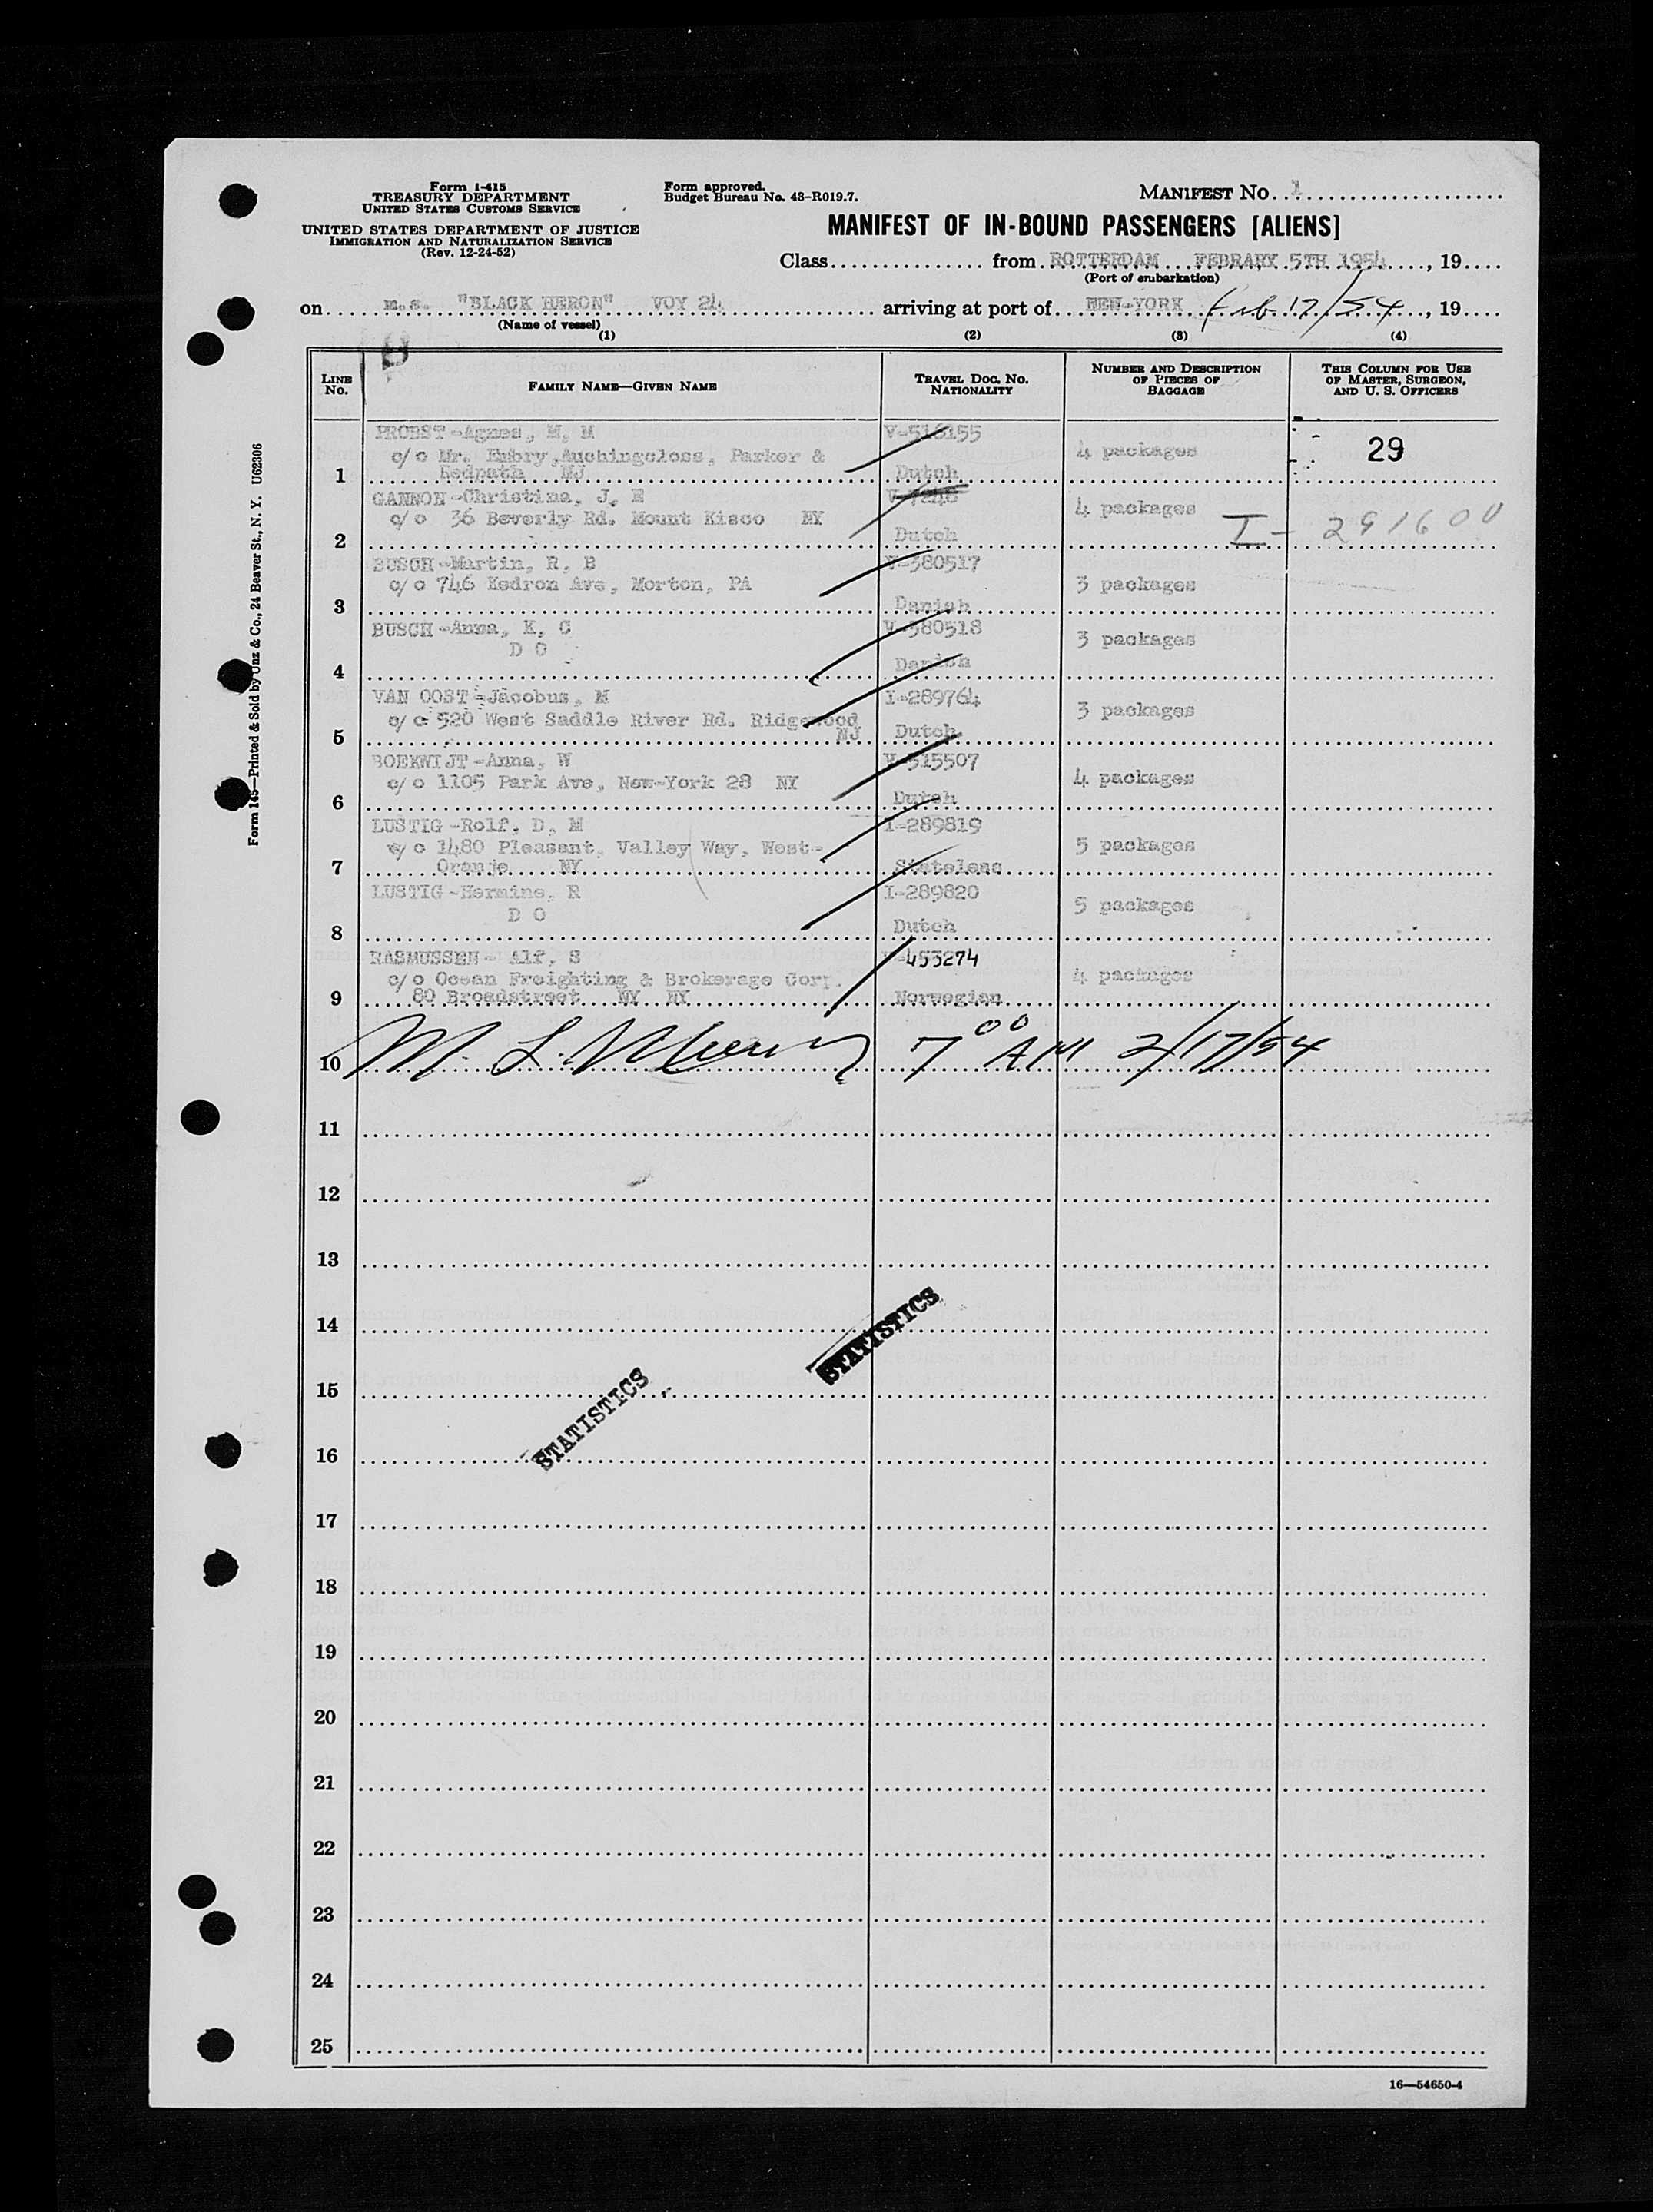 Form I-415
TREASURY DEPARTMENT
UNITED STATES CUSTOMS SERVICE
UNITED STATES DEPARTMENT OF JUSTICE
IMMIGRATION AND NATURALIZATION SERVICE
(Rev. 12-24-52)
Form approved.
Budget Bureau No. 43-R019.7.
MANIFEST NO. 1
MANIFEST OF IN-BOUND PASSENGERS [ALIENS]
Class from ROTTERDAM FEBRARY 5TH 1954, 19
(Port of embarkation)
on m.s. "BLACK HERON" VOY 24 arriving at port of NEW-YORK Feb 17/54, 19
(Name of vessel)
(1) (2) (3) (4)
LINE NO. FAMILY NAME—GIVEN NAME TRAVEL DOC. NO. NATIONALITY NUMBER AND DESCRIPTION OF PIECES OF BAGGAGE THIS COLUMN FOR USE OF MASTER, SURGEON, AND U. S. OFFICERS
PROBST-Agnes, M, M V-516155
c/o Mr. Embry, Auchingcloss, Parker & 4 packages 29
1 Redpath NJ Dutch
GANNON-Christina, J, E
c/o 36 Beverly Rd. Mount Kisco NY 4 packages I-291600
2 Dutch
BUSCH-Martin, R, B V-380517
c/o 746 Kedron Ave, Morton, PA 3 packages
3 Danish
BUSCH-Anna, K, C V-380518
D O 3 packages
4 Danish
VAN OOST-Jacobus, M I-289764
c/o 520 West Saddle River Rd. Ridgewood 3 packages
5 NJ Dutch
BOEKWIJT-Anna, W V-515507
c/o 1105 Park Ave, New-York 28 NY 4 packages
6 Dutch
LUSTIG-Rolf, D, M I-289819
c/o 1480 Pleasant, Valley Way, West- 5 packages
7 Oranje NY Stateless
LUSTIG-Hermine, R I-289820
D O 5 packages
8 Dutch
RASMUSSEN- Alf, S -453274
c/o Ocean Freighting & Brokerage Corp. 4 packages
9 80 Broadstreet NY NY Norwegian
10 M. L. 7 00 AM 2/17/54
11
12
13
14
STATISTICS
15
STATISTICS
16
17
18
19
20
21
22
23
24
25
16—54650-4
Form 145—Printed & Sold by Unz & Co., 24 Beaver St., N. Y. U62306